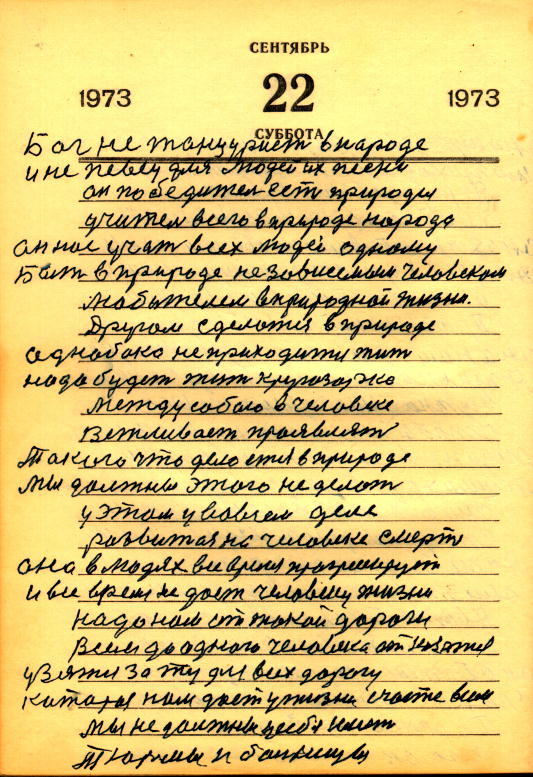 СЕНТЯБРЬ
1973 22 1973
СУББОТА
Бог не танцурист в народе
и не певец для людей их песни
он победител ест природы
учител всего в природе народа
он нас учат всех людей одному
Быт в природе независемым человеком
любытелем в природной жизни.
Другом сделатся в природе
однобока не приходится жит
надо будет жит кругозорко
между собою в человеке
Вежливаст проявлят
Такого что делоется в природе
мы должны этого не делат
у этом у вовсем деле
развитая на человеке смерть
она в людях все время прогресирует
и все время не дает человеку жизни
надо нам от такой дороги
всем до одного человека отказатся
у взятся за ту для всех дорогу
каторая нам даст у жизни счасте всем
мы не должны у себя имет
Тюрмы и больницы